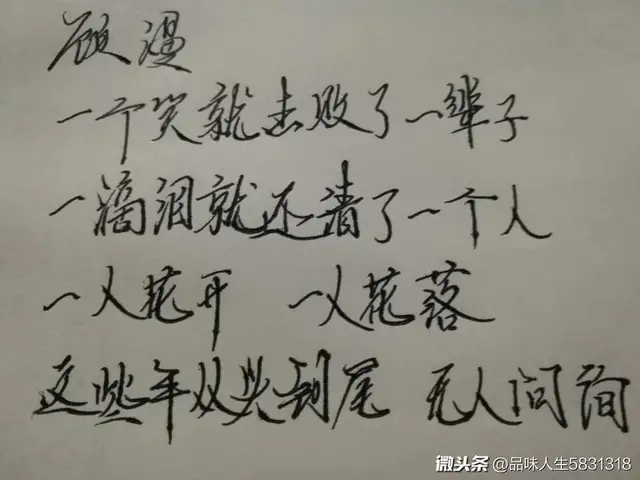 顾漫
一个笑就击败了一辈子
一滴泪就还清了一个人
一人花开 一人花落
这些年从头到尾 无人问询
微头条 @品味人生5831318